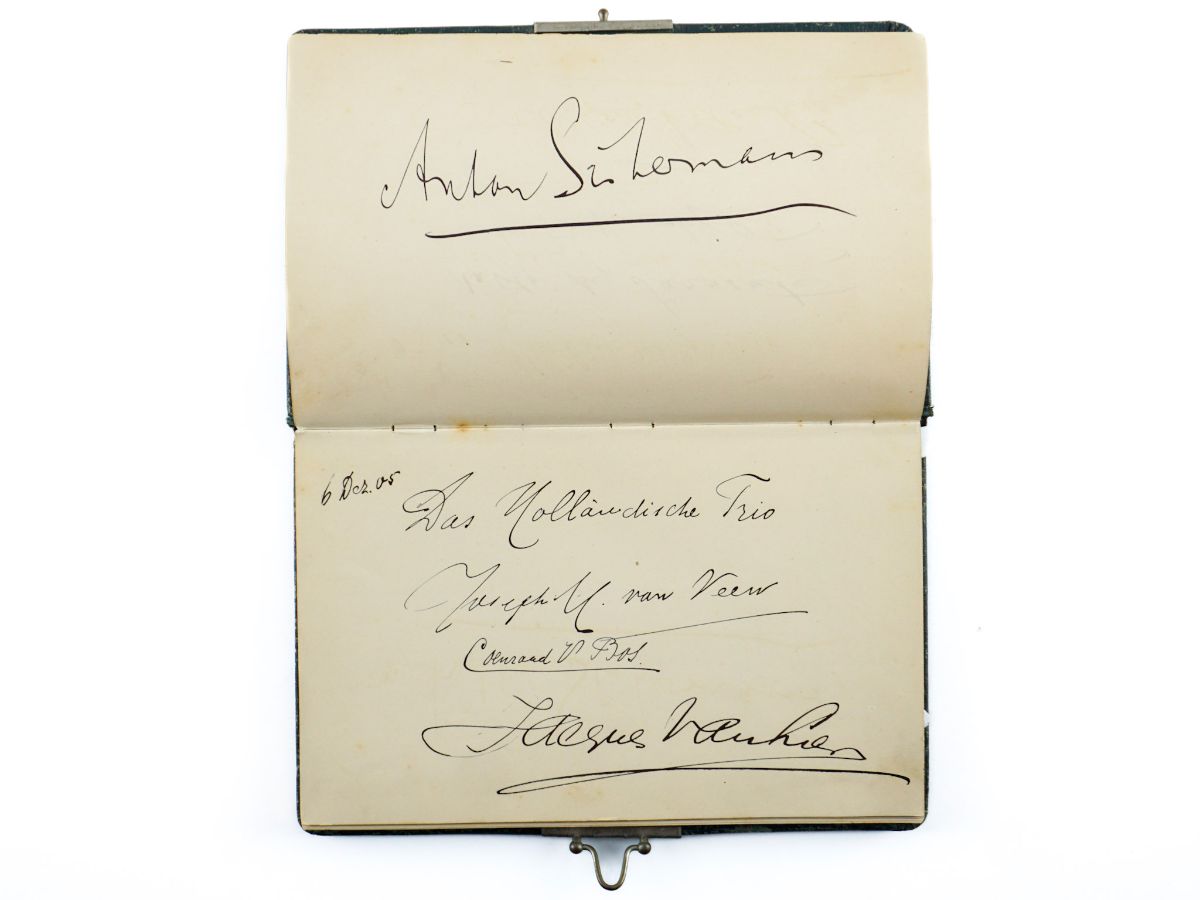 Anton Sistermans
6 Dez. 05
Das Holländische Trio
Joseph M. van Veen
Coenraad V. Bos.
Jacques van Lier